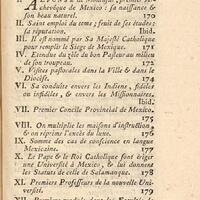 vêque de Mexico : sa naissance &
son beau naturel. 170
II. Saint emploi du tems ; fruit de ses études :
sa réputation. Ibid.
III. Il est nommé par Sa Majesté Catholique
pour remplir le Siege de Mexique. 171
IV. Etendue du zéle du bon Pasteur au milieu
de son troupeau. 172
V. Visites pastorales dans la Ville & dans le
Diocése. 174
VI. Sa conduite envers les Indiens, fidéles
ou infidéles, & envers les Missionnaires,
Ibid.
VII. Premier Concile Provincial de Mexico.
175
VIII. On multiplie les maisons d'instruction,
& on réprime l'excès du luxe. 176
IX. Somme des cas de conscience en langue
Mexicaine. 177
X. Le Pape & le Roi Catholique font ériger
une Université à Mexico, & lui donnent
les Statuts de celle de Salamanque. 178
XI. Premiers Professeurs de la nouvelle Université. 179